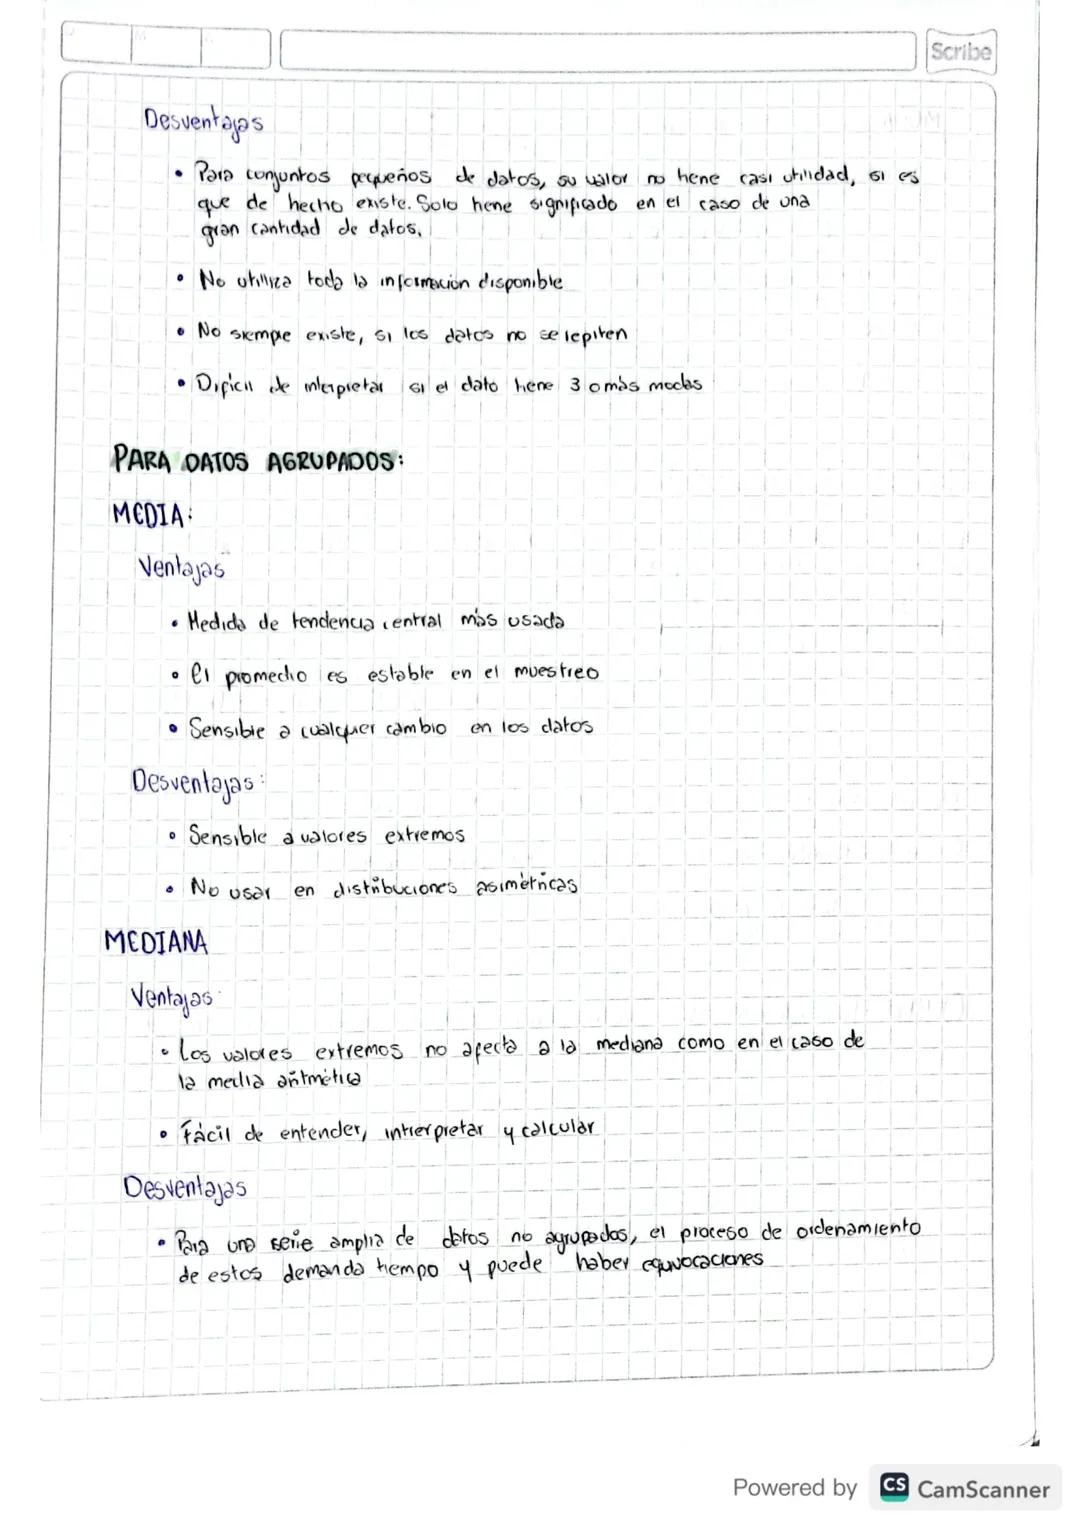 Scribe
Desventajas
• Para conjuntos pequeños de datos, su valor no tiene casi utilidad, si es
que de hecho existe. Solo tiene significado en el caso de una
gran cantidad de datos.
• No utiliza toda la información disponible
• No siempre existe, si los datos no se repiten
• Difícil de interpretar si el dato tiene 3 o más modas
PARA DATOS AGRUPADOS:
MEDIA:
Ventajas
• Medida de tendencia central más usada
• El promedio es estable en el muestreo
• Sensible a cualquier cambio en los datos
Desventajas:
• Sensible a valores extremos
• No usar en distribuciones asimétricas
MEDIANA
Ventajas
• Los valores extremos no afecta a la mediana como en el caso de
la media aritmética
• fácil de entender, intrerpretar y calcular
Desventajas
• Para una serie amplia de datos no agrupados, el proceso de ordenamiento
de estos demanda tiempo y puede haber equivocaciones
Powered by CS CamScanner